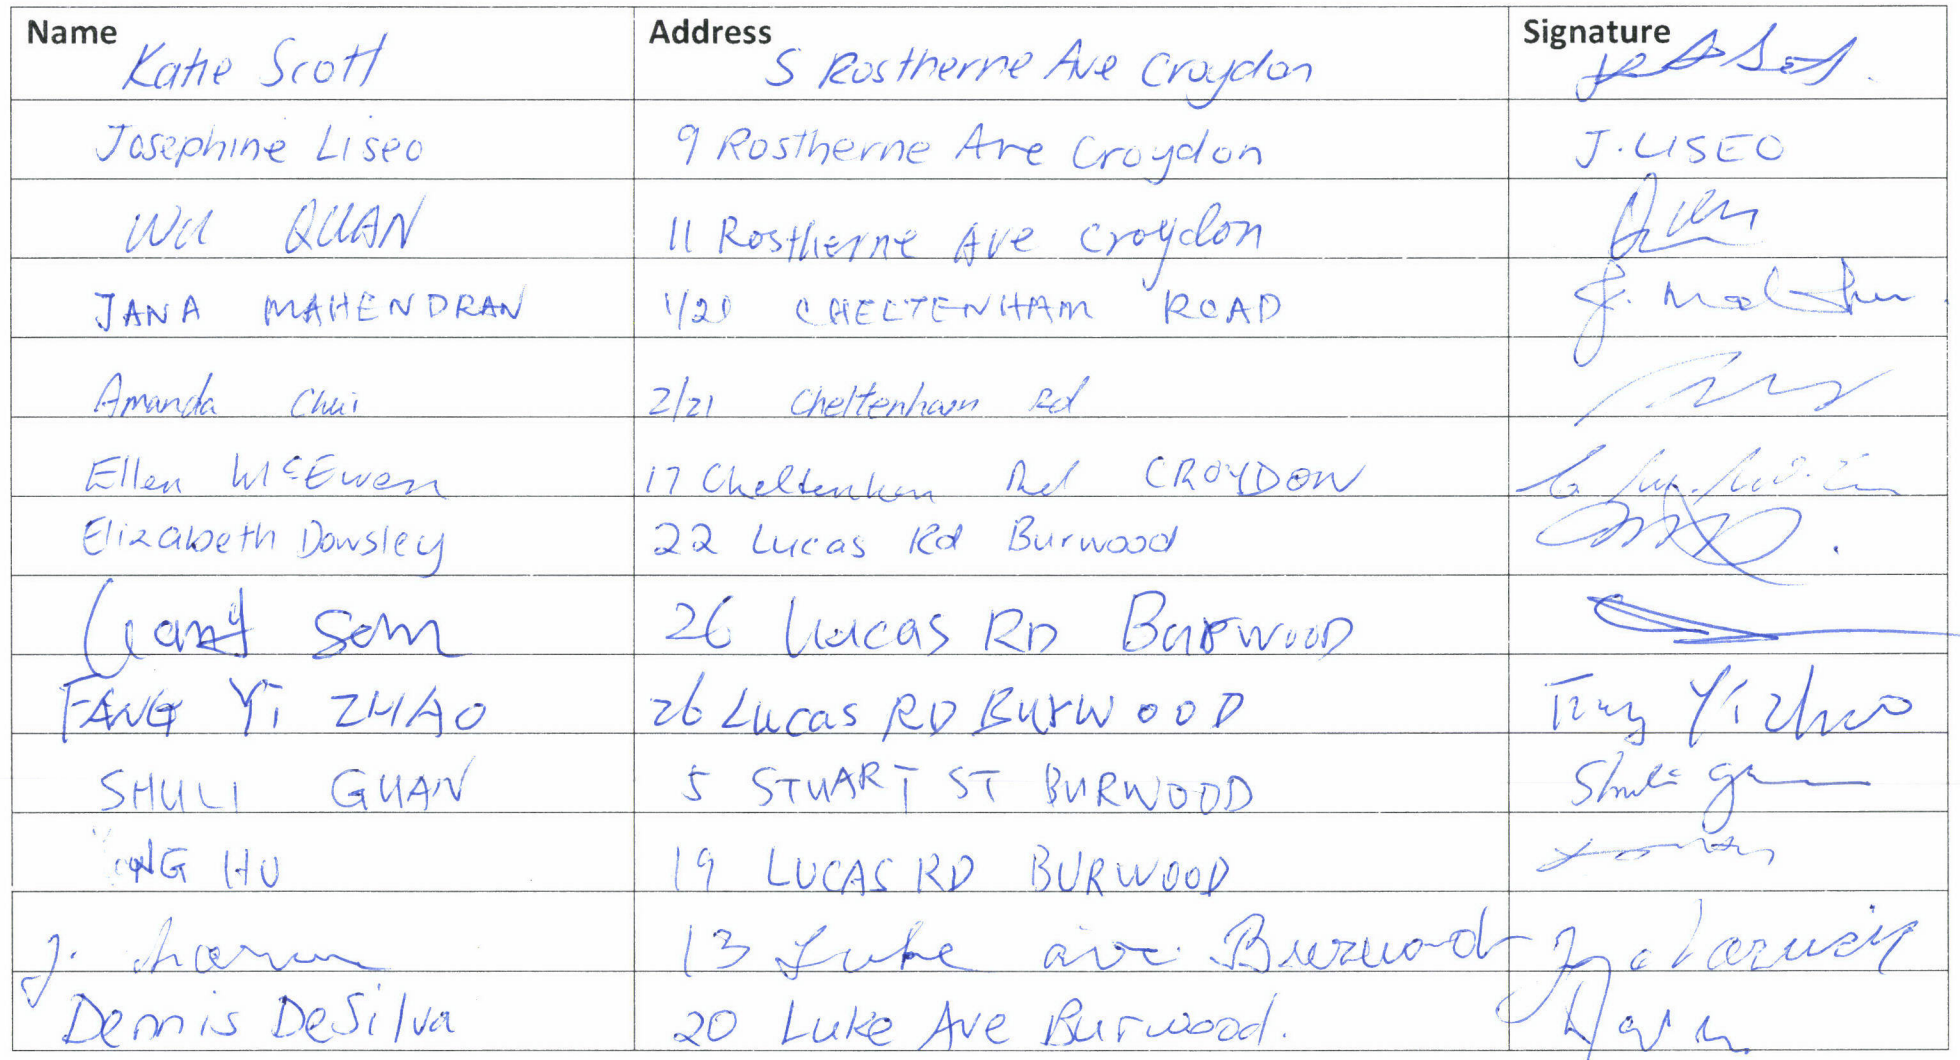 Name Address Signature
Katie Scott 5 Rostherne Ave Croydon
Josephine Liseo 9 Rostherne Ave Croydon J. LISEO
WU QUAN 11 Rostherne Ave Croydon
JANA MAHENDRAN 1/21 CHELTENHAM ROAD
Amanda Chui 2/21 Cheltenham Rd
Ellen McEwen 17 Cheltenham Rd CROYDON
Elizabeth Dowsley 22 Lucas Rd Burwood
26 Lucas RD BURWOOD
FANG Yi ZHAO 26 Lucas RD BURWOOD
SHULI GUAN 5 STUART ST BURWOOD Shuli
HU 19 LUCAS RD BURWOOD
J. 13 Luke ave. Burwood
Dennis DeSilva 20 Luke Ave Burwood.